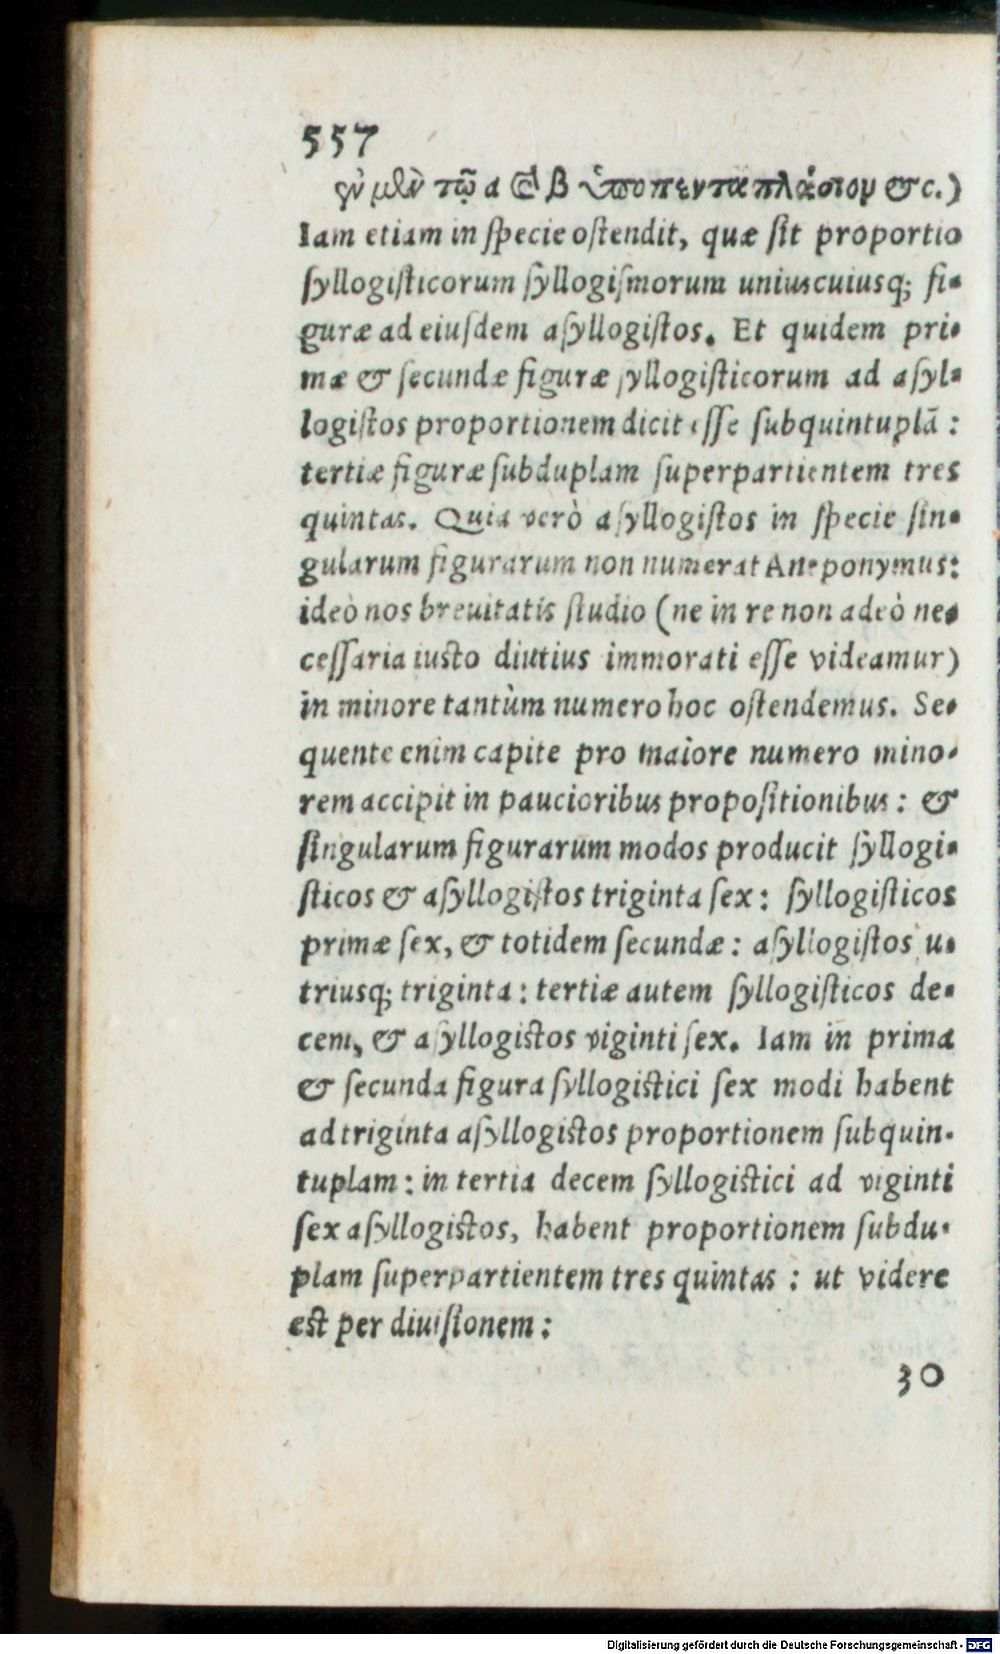 557
ἐν μὲν τῷ α καὶ β ὑποπενταπλάσιον &c.)
Iam etiam in ſpecie oſtendit, quæ ſit proportio
ſyllogiſticorum ſyllogiſmorum uniuscuiusq; fi-
guræ ad eiuſdem aſyllogiſtos. Et quidem pri-
mæ & ſecundæ figuræ ſyllogiſticorum ad aſyl-
logiſtos proportionem dicit eſſe ſubquintuplā :
tertiæ figuræ ſubduplam ſuperpartientem tres
quintas. Quia verò aſyllogiſtos in ſpecie ſin-
gularum figurarum non numerat Aneponymus:
ideò nos breuitatis ſtudio (ne in re non adeò ne-
ceſſaria iuſto diutius immorati eſſe videamur)
in minore tantùm numero hoc oſtendemus. Se-
quente enim capite pro maiore numero mino-
rem accipit in paucioribus propoſitionibus : &
ſingularum figurarum modos producit ſyllogi-
ſticos & aſyllogiſtos triginta ſex : ſyllogiſticos
primæ ſex, & totidem ſecundæ : aſyllogiſtos u-
triusq; triginta : tertiæ autem ſyllogiſticos de-
cem, & aſyllogiſtos viginti ſex. Iam in prima
& ſecunda figura ſyllogiſtici ſex modi habent
ad triginta aſyllogiſtos proportionem ſubquin-
tuplam : in tertia decem ſyllogiſtici ad viginti
ſex aſyllogiſtos, habent proportionem ſubdu-
plam ſuperpartientem tres quintas : ut videre
eſt per diuiſionem :
30
Digitalisierung gefördert durch die Deutsche Forschungsgemeinschaft - DFG